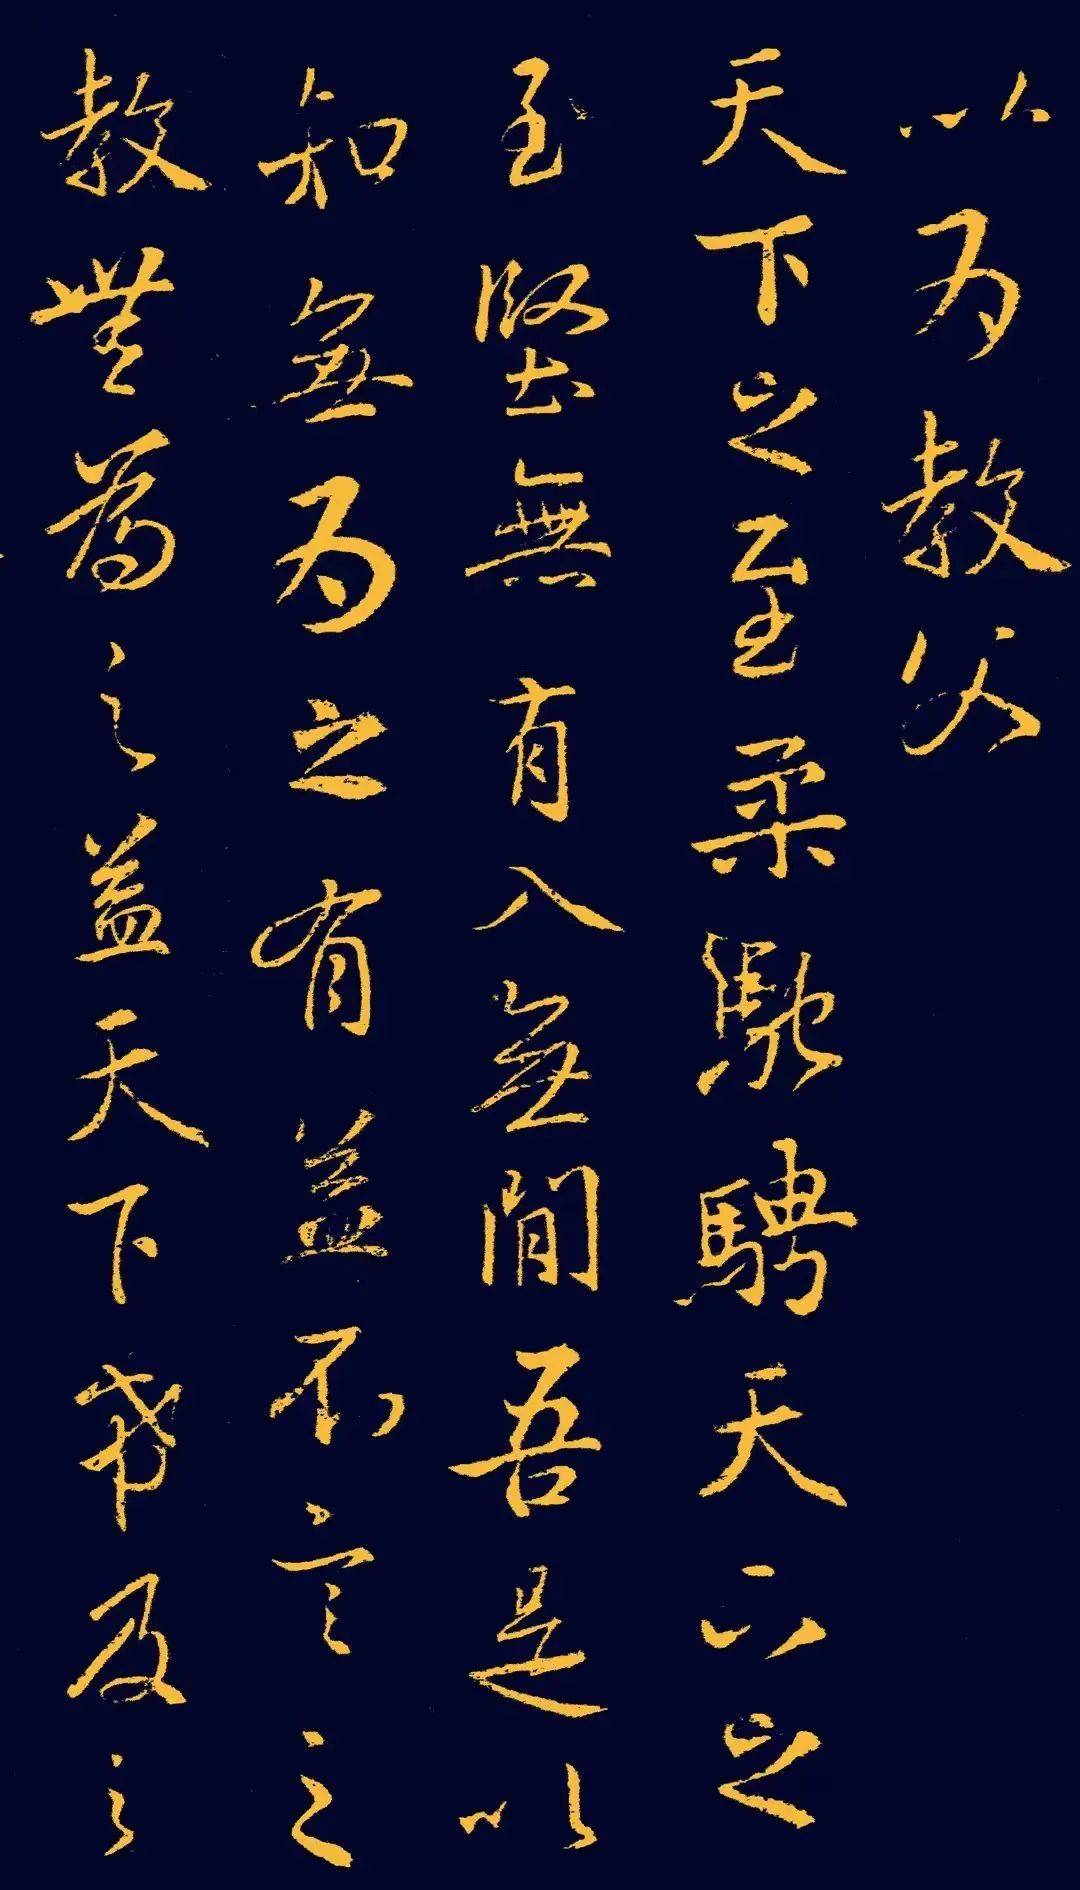 以为教父
天下之至柔馳騁天下之
至堅無有入無間吾是以
知無为之有益不言之
教無為之益天下希及之